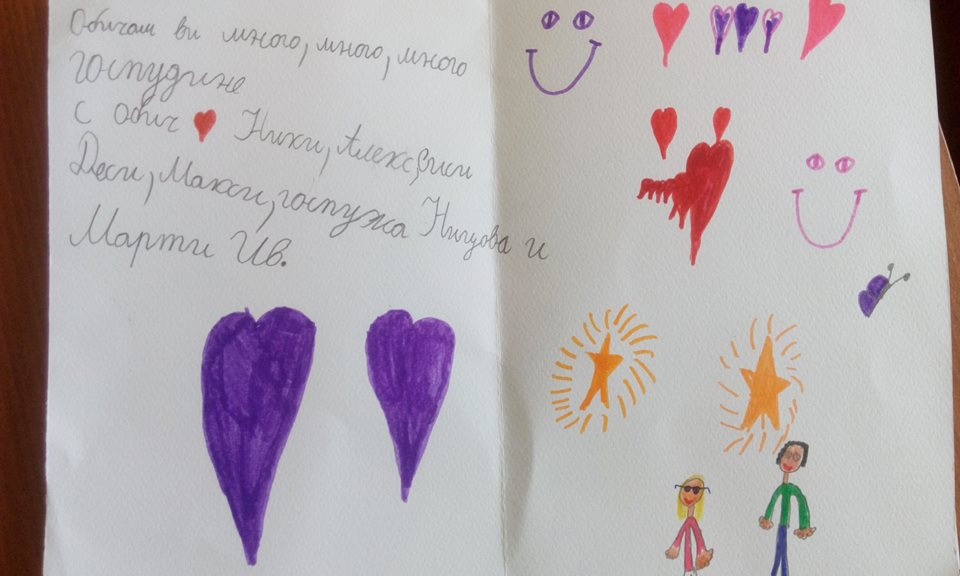 Обичам ви много, много, много
госпудине
с обич Ники, Алекс, Виси
Деси, Макси, госпужа Ницова и
Марти Ив.